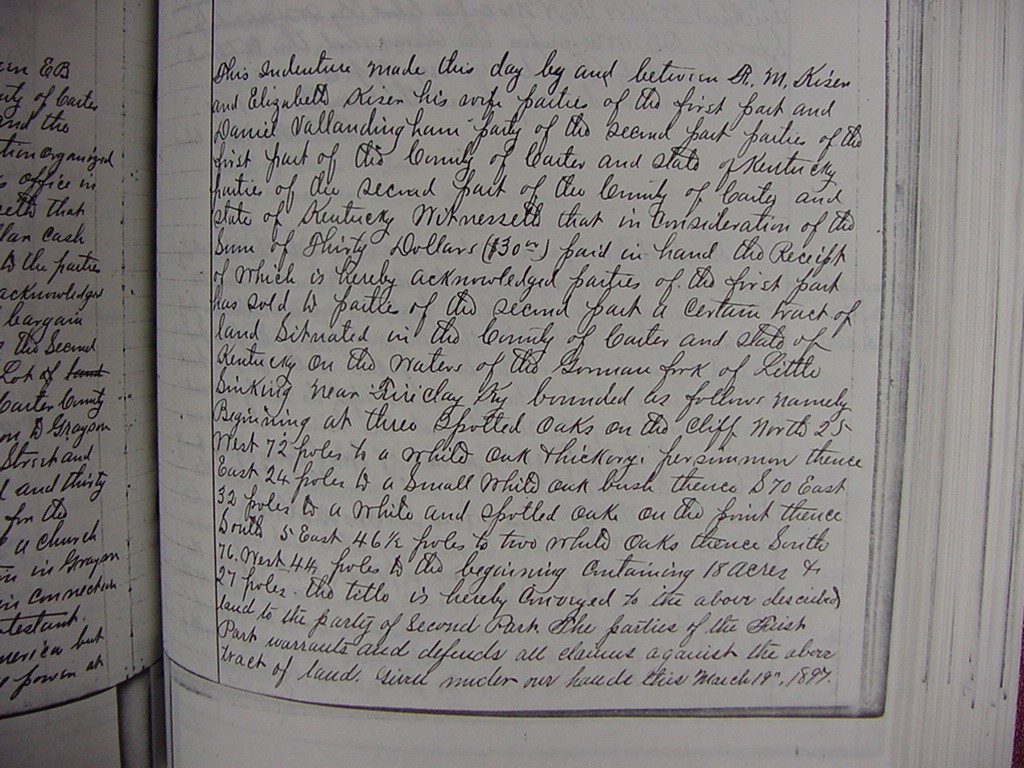 een EB
nty of Carter
and the
tion organized
s office in
seth that
llar cash
to the parties
acknowledged
bargain
s the Second
Lot of land
Carter County
on to Grayson
Street and
l and thirty
for the
e a church
in Grayson
in connection
testant
merica but
power at
This Indenture made this day by and between R. M. Kiser
and Elizabeth Kiser his wife parties of the first part and
Daniel Vallandingham party of the second part parties of the
first part of the County of Carter and state of Kentucky
parties of the second part of the County of Carter and
state of Kentucky Witnesseth that in Consideration of the
Sum of Thirty Dollars ($30 00) paid in hand the Receipt
of which is hereby acknowledged parties of the first part
has sold to parties of the second part a Certain tract of
land Situated in the County of Carter and state of
Kentucky on the waters of the Gorman fork of Little
Sinking near Fireclay Ky bounded as follows namely
Beginning at three Spotted Oaks on the Cliff North 25
West 72 poles to a white oak & hickory persimmon thence
East 24 poles to a Small white oak bush thence S 70 East
32 poles to a white and spotted oak on the point thence
South 5 East 46½ poles to two white Oaks thence South
76. West 44 poles to the beginning Containing 18 acres &
27 poles. the title is hereby Conveyed to the above described
land to the party of Second Part. The parties of the First
Part warrants and defends all claims against the above
tract of land. Given under our hands this March 19th, 1897.